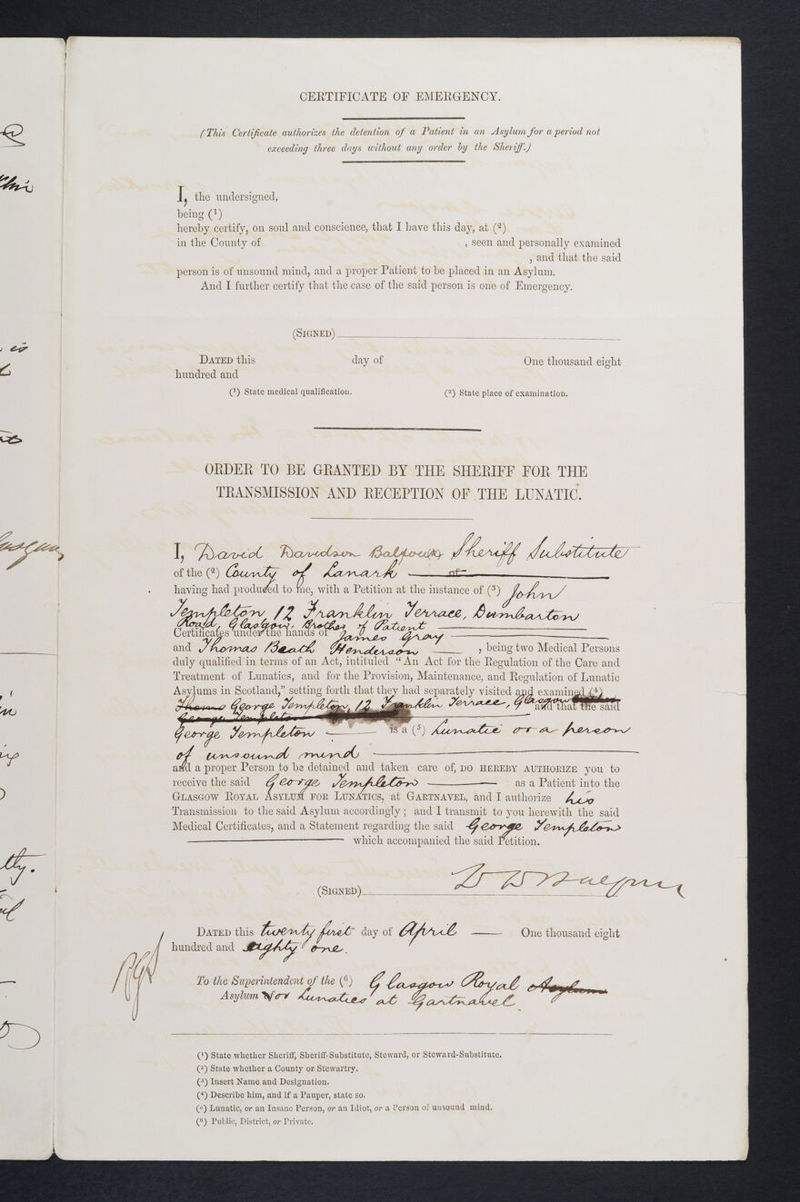 CERTIFICATE OF EMERGENCY.
(This Certificate authorizes the detention of a Patient in an Asylum for a period not
exceeding three days without any order by the Sheriff.)
I, the undersigned,
being (1)
hereby certify, on soul and conscience, that I have this day, at (2)
in the County of , seen and personally examined
, and that the said
person is of unsound mind, and a proper Patient to be placed in an Asylum.
And I further certify that the case of the said person is one of Emergency.
(SIGNED)
DATED this day of One thousand eight
hundred and
(1) State medical qualification. (2) State place of examination.
ORDER TO BE GRANTED BY THE SHERIFF FOR THE
TRANSMISSION AND RECEPTION OF THE LUNATIC.
I, David Davidson Balfour Sheriff Substitute
of the (2) County of Lanark of
having had produced to me, with a Petition at the instance of (3) John
Templeton, 12 Franklin Terrace, Dumbarton
Road, Glasgow, Brother of Patient
Certificates under the hands of James Gray
and Thomas Beath Henderson , being two Medical Persons
duly qualified in terms of an Act, intituled "An Act for the Regulation of the Care and
Treatment of Lunatics, and for the Provision, Maintenance, and Regulation of Lunatic
Asylums in Scotland," setting forth that they had separately visited and examined (4)
George Templeton, 12 Franklin Terrace, Glasgow and that the said
George Templeton is a (5) Lunatic or a person
of unsound mind
and a proper Person to be detained and taken care of, DO HEREBY AUTHORIZE you to
receive the said George Templeton as a Patient into the
GLASGOW ROYAL ASYLUM FOR LUNATICS, at GARTNAVEL, and I authorize his
Transmission to the said Asylum accordingly; and I transmit to you herewith the said
Medical Certificates, and a Statement regarding the said George Templeton
which accompanied the said Petition.
(SIGNED) D D Balfour
DATED this twenty first day of April One thousand eight
hundred and eighty one.
To the Superintendent of the (6) Glasgow Royal Asylum
Asylum for Lunatics at Gartnavel.
(1) State whether Sheriff, Sheriff-Substitute, Steward, or Steward-Substitute.
(2) State whether a County or Stewartry.
(3) Insert Name and Designation.
(4) Describe him, and if a Pauper, state so.
(5) Lunatic, or an Insane Person, or an Idiot, or a Person of unsound mind.
(6) Public, District, or Private.